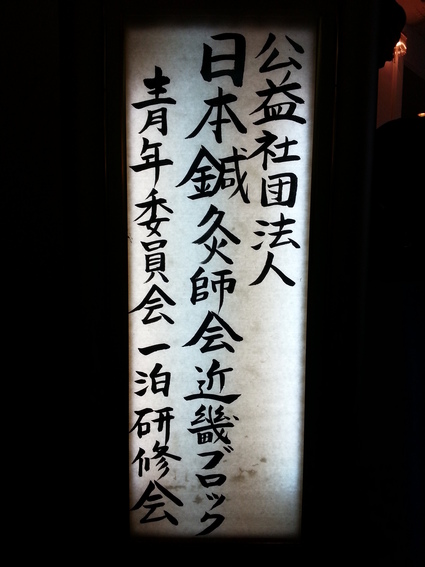 公益社団法人
日本鍼灸師会近畿ブロック
青年委員会一泊研修会